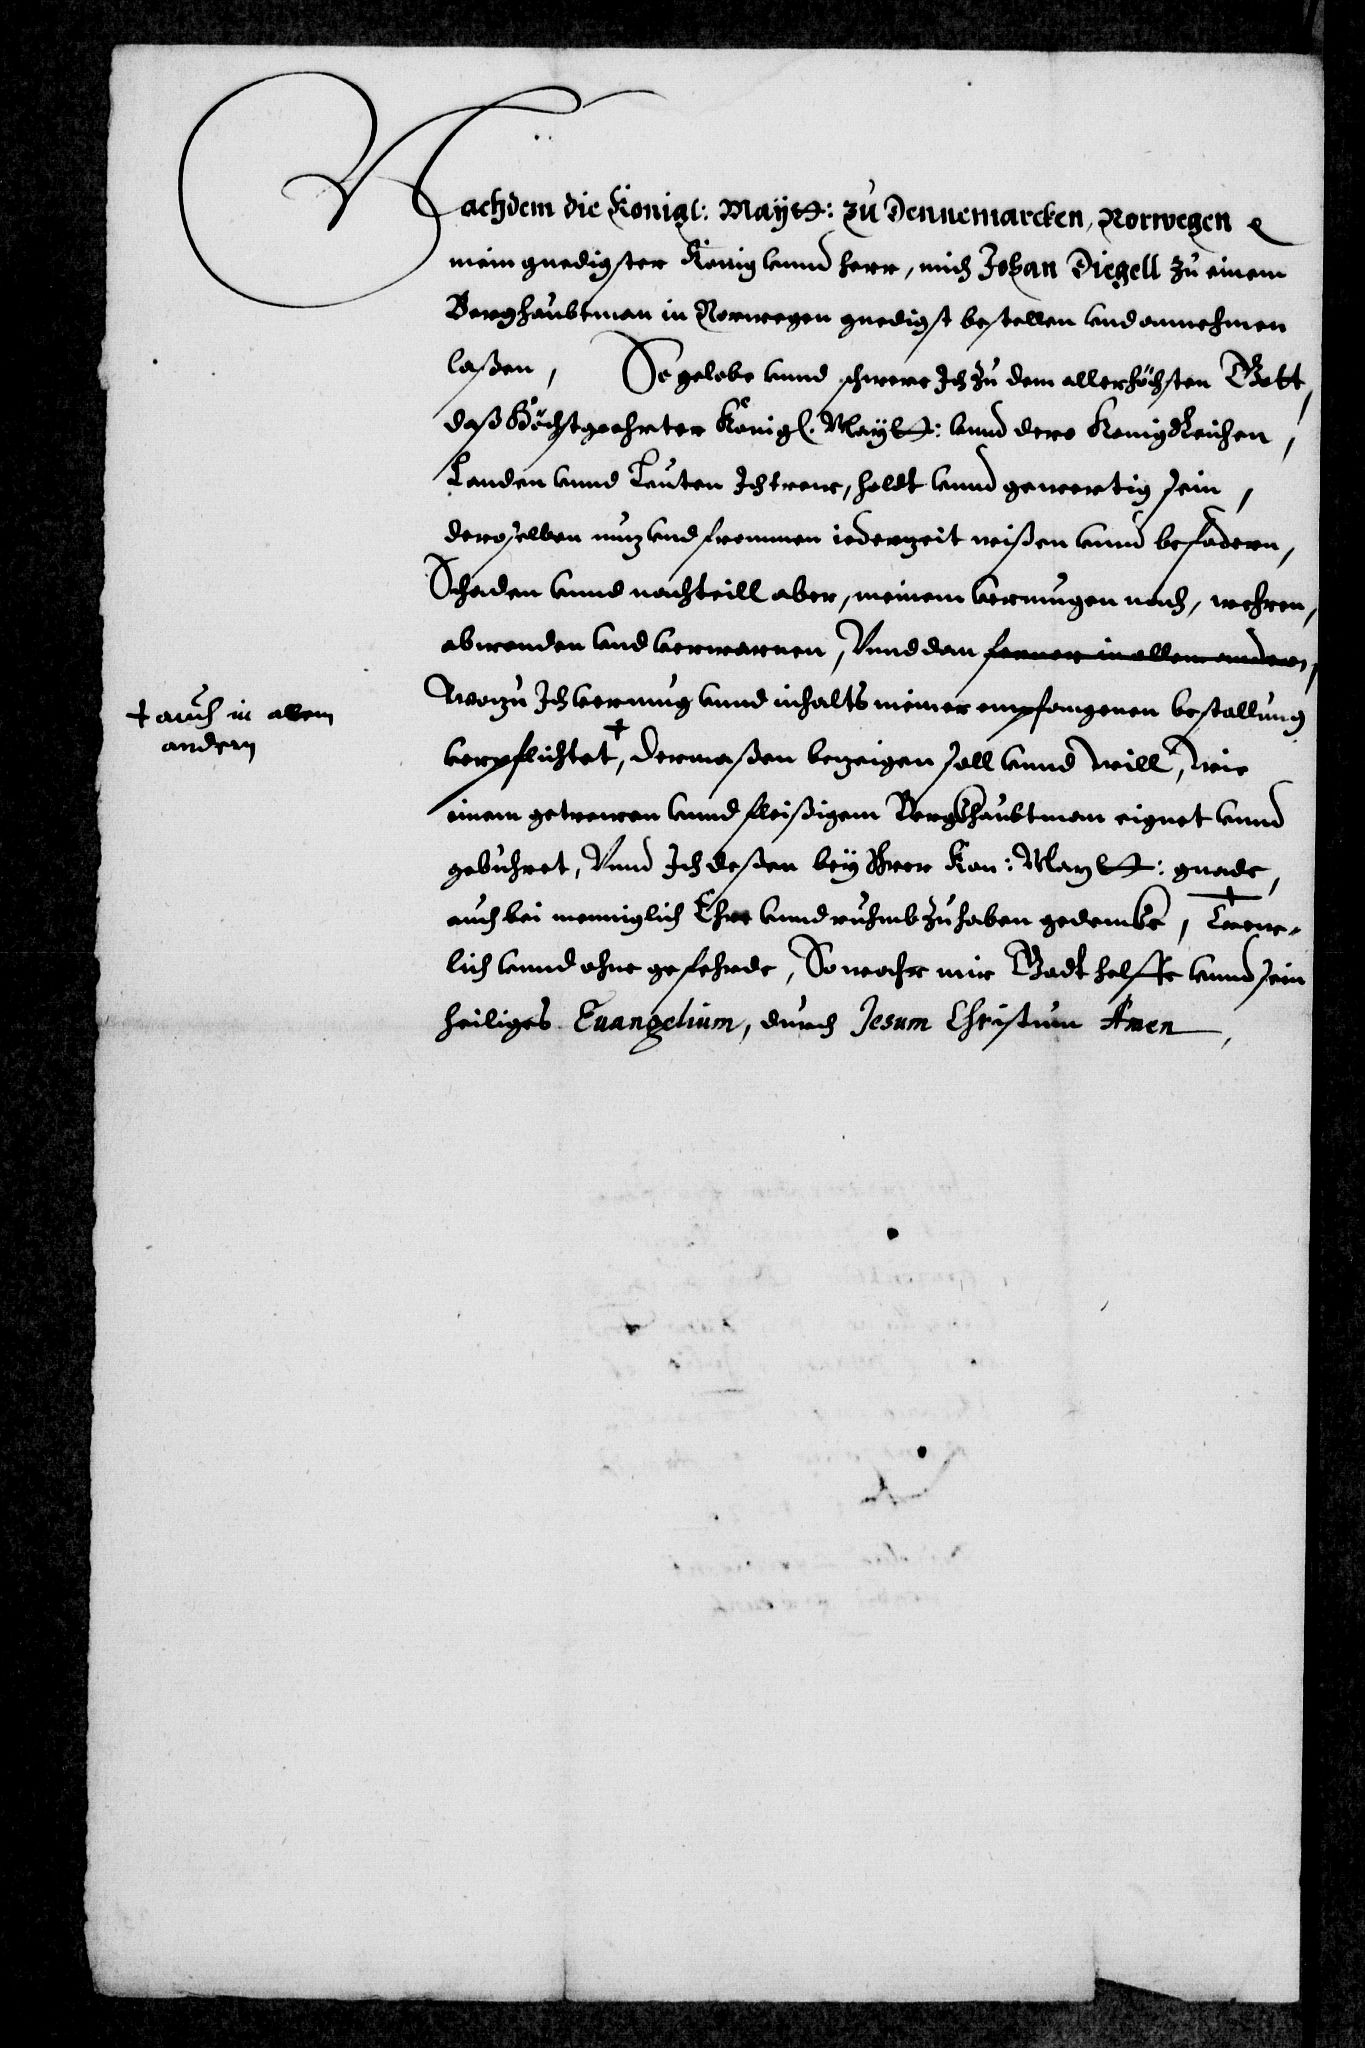 Nachdem die Königl: Maÿtt: zu Dennemarcken, Norwegen
mein gnedigster König vnnd herr, mich Johan Diegell zu einem
Berghaubtman in Norwegen gnedigst bestellen vnd annehmen
laßen, So gelobe vnnd schwere Ich zu dem allerhöchsten Gott,
daß Höchstgeehrter Königl. Maÿtt: vnnd dero KönigReichen,
Landen vnnd Leuten Ich trew, holdt vnnd gewertig sein,
deroselben nuz vnd frommen iederzeit wißen vnnd befodern,
Schaden vnnd nachteill aber, meinem vermugen nach, wehren,
abwenden vnd verwarnen, Vnnd dan ferner in allem andern,
Wozu Ich vermug vnnd inhalts meiner empfangenen bestallung
† auch in allem
andern
verpflichtet †, dermaßen bezeigen soll vnnd will, wie
einem getrewen vnnd fleißigem Berghaubtman eignet vnnd
gebuhret, Vnnd Ich deßen beÿ Ihrer Kön: Maÿtt: gnade,
auch bei menniglich Ehre vnnd ruhmb zu haben gedencke, Trew-
lich vnnd ohne gefehrde, So wahr mir Gott helffe vnnd sein
heiliges Euangelium, durch Jesum Christum Amen,